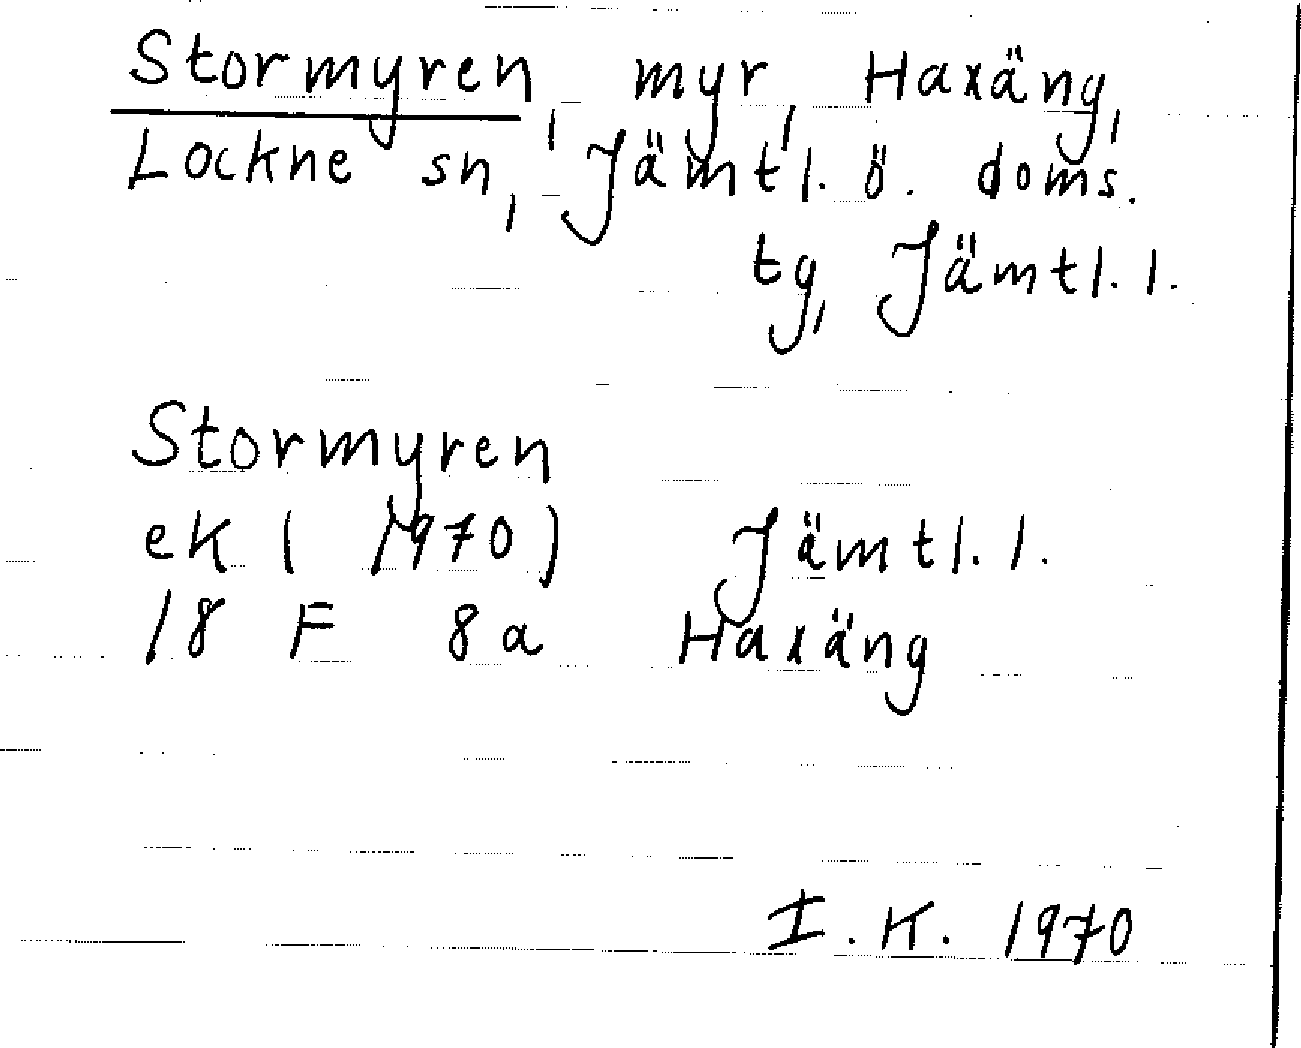 Stormyren, myr, Haxäng,
Lockne sn, Jämtl. ö. doms.
tg, Jämtl. l.
Stormyren
ek ( 1970) Jämtl. l.
18 F 8a Haxäng
I. K. 1970